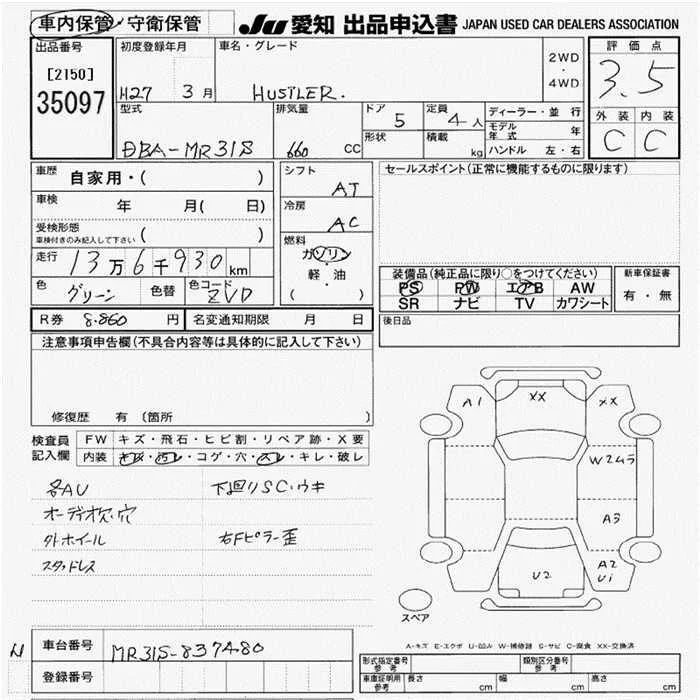 車内保管・守衛保管 JU 愛知 出品申込書 JAPAN USED CAR DEALERS ASSOCIATION
出品番号
[2150]
35097
初度登録年月
H27 3月
車名・グレード
HUSTLER.
2WD
・
4WD
評価点
3.5
外装 内装
C C
型式
DBA-MR31S
排気量
660 CC
ドア 5
形状
定員 4人
積載 kg
ディーラー・並行
モデル年式 年
ハンドル 左・右
車歴 自家用・( )
車検 年 月( 日)
受検形態
車検付きのみ記入して下さい ( )
走行 13万6千930km
色 グリーン 色替 色コード ZVD
シフト
AT
冷房
AC
燃料
ガソリン
軽・油
( )
セールスポイント(正常に機能するものに限ります)
装備品(純正品に限り○をつけてください)
PS PW エアB AW
SR ナビ TV カワシート
新車保証書
有・無
R券 8.860 円 名変通知期限 月 日
後日品
注意事項申告欄(不具合内容等は具体的に記入して下さい)
修復歴 有 〔箇所 〕
検査員記入欄
FW キズ・飛石・ヒビ割・リペア跡・X要
内装 キズ・汚レ・コゲ・穴・スレ・キレ・破レ
各AU 下回りSC・ウキ
オーディオ欠・穴
外ホイール 右Fピラー歪
スタッドレス
A1
XX
XX
W2ムラ
A3
A2
U1
U2
スペア
A-キズ E-エクボ U-凹み W-補修跡 S-サビ C-腐食 XX-交換済
車台番号 MR31S-837480
登録番号
形式指定番号
参考
類別区分番号
参考
車庫証明用
参考
長さ cm 幅 cm 高さ cm